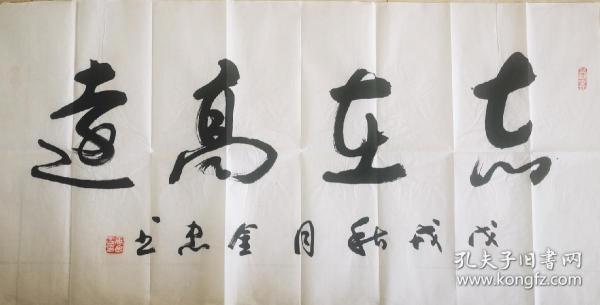 志在高遠
戊戌秋月金忠书
孔夫子旧书网
www.kongfz.com